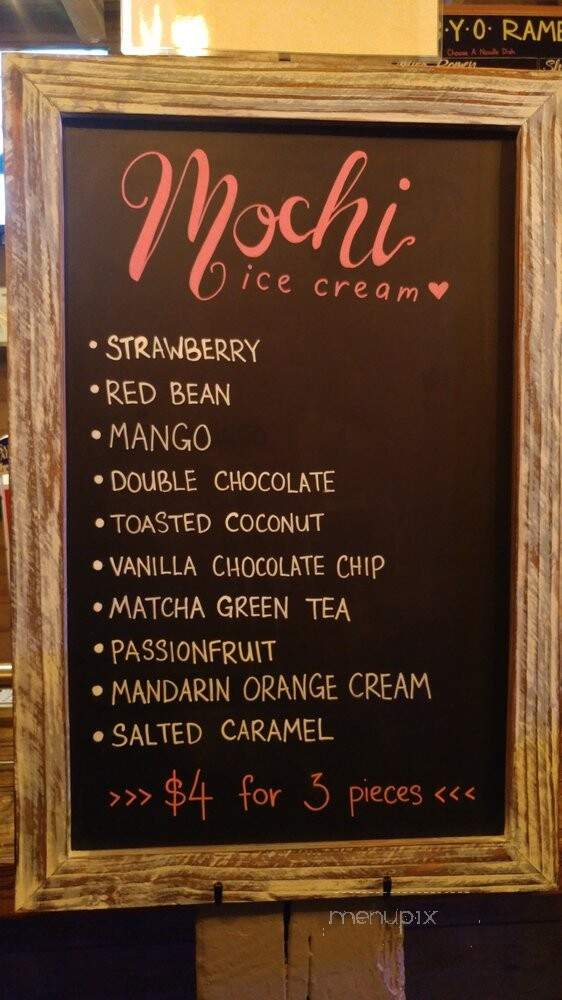 Y.O. RAME
Choose A Noodle Dish
Mochi
ice cream ♥
• STRAWBERRY
• RED BEAN
• MANGO
• DOUBLE CHOCOLATE
• TOASTED COCONUT
• VANILLA CHOCOLATE CHIP
• MATCHA GREEN TEA
• PASSIONFRUIT
• MANDARIN ORANGE CREAM
• SALTED CARAMEL
>>> $4 for 3 pieces <<<
menupix